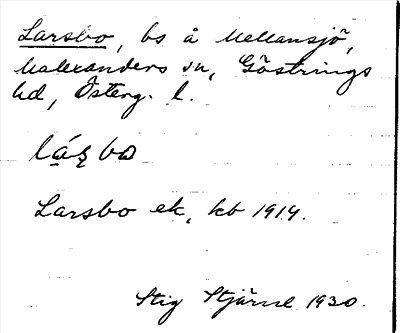 Larsbo, bs å Mellansjö,
Malexanders sn, Göstrings
hd, Österg. l.
lá̠ʂbω
Larsbo ek, kb 1914.
Stig Stjärne 1930.